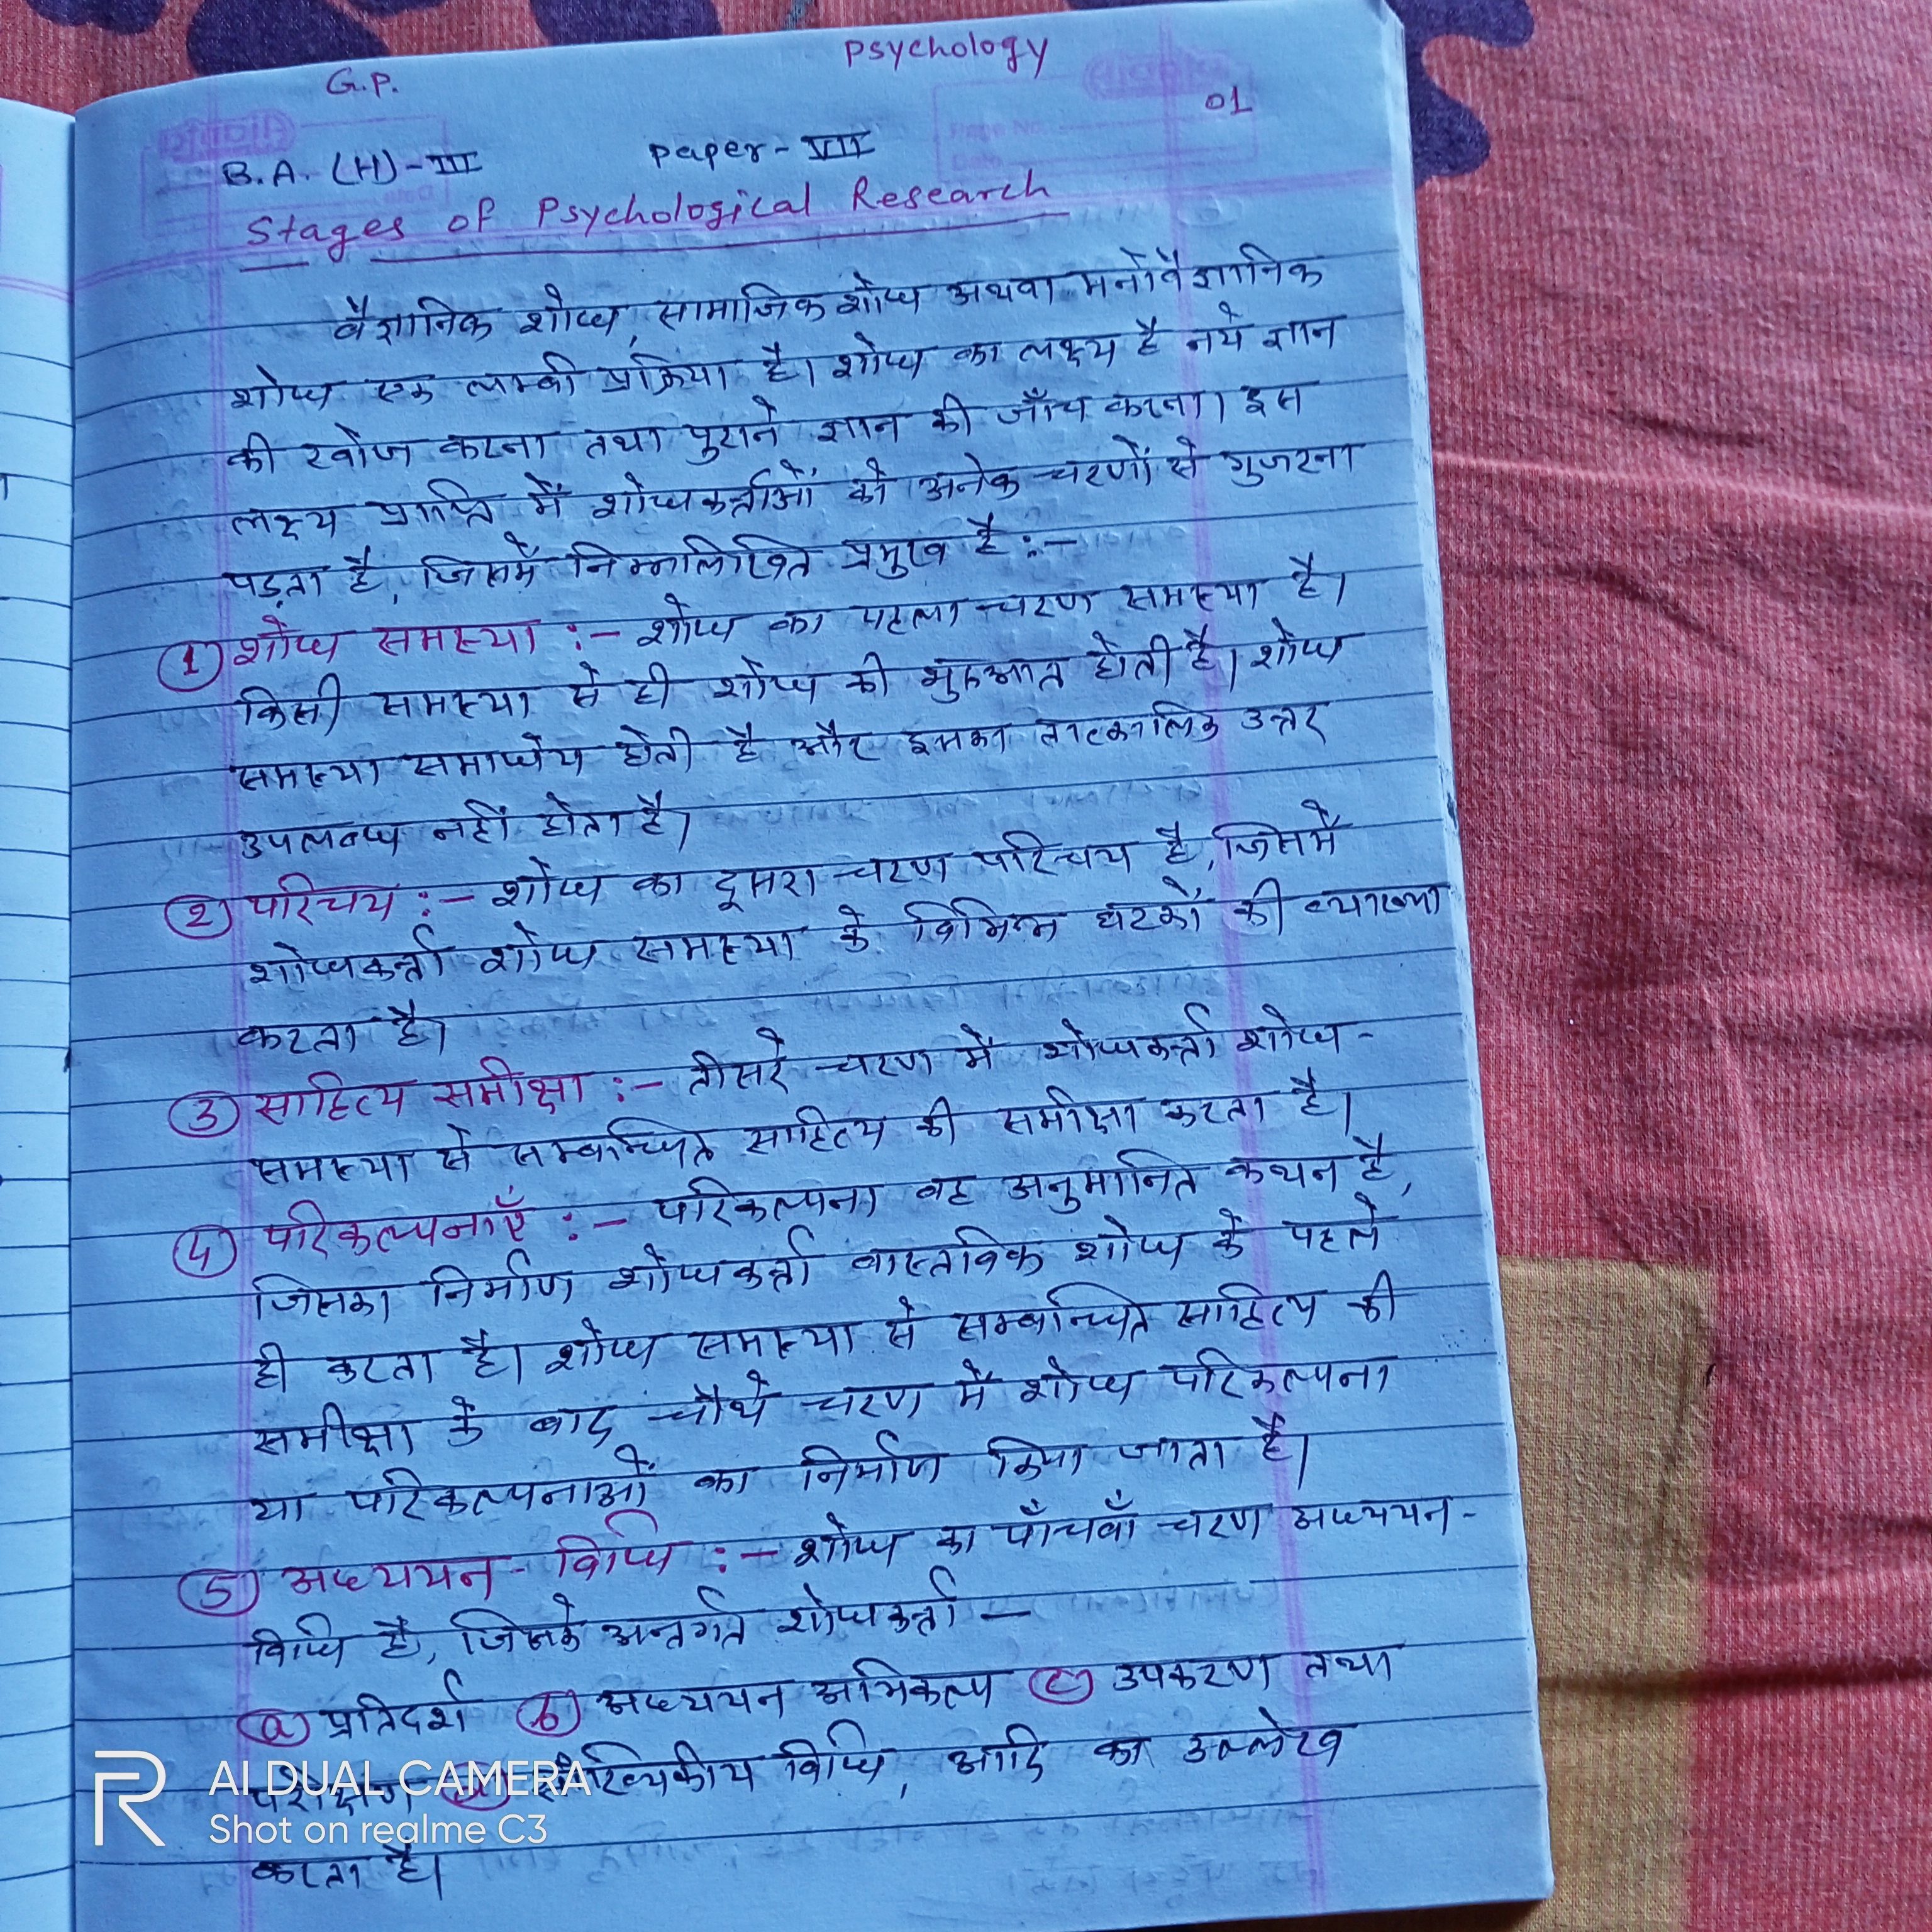 G.P. Psychology
01
B.A. (H)-III Paper-VII
Stages of Psychological Research
वैज्ञानिक शोध, सामाजिक शोध अथवा मनोवैज्ञानिक
शोध एक लम्बी प्रक्रिया है। शोध का लक्ष्य है नये ज्ञान
की खोज करना तथा पुराने ज्ञान की जाँच करना। इस
लक्ष्य प्राप्ति में शोधकर्त्ताओं को अनेक चरणों से गुजरना
पड़ता है, जिसमें निम्नलिखित प्रमुख है :-
① शोध समस्या :- शोध का पहला चरण समस्या है।
किसी समस्या से ही शोध की शुरुआत होती है। शोध
समस्या समाधेय होती है और इसका तात्कालिक उत्तर
उपलब्ध नहीं होता है।
② परिचय :- शोध का दूसरा चरण परिचय है, जिसमें
शोधकर्त्ता शोध समस्या के विभिन्न घटकों की व्याख्या
करता है।
③ साहित्य समीक्षा :- तीसरे चरण में शोधकर्त्ता शोध-
समस्या से सम्बन्धित साहित्य की समीक्षा करता है।
④ परिकल्पनाएँ :- परिकल्पना वह अनुमानित कथन है,
जिसका निर्माण शोधकर्त्ता वास्तविक शोध के पहले
ही करता है। शोध समस्या से सम्बन्धित साहित्य की
समीक्षा के बाद चौथे चरण में शोध परिकल्पना
या परिकल्पनाओं का निर्माण किया जाता है।
⑤ अध्ययन-विधि :- शोध का पाँचवाँ चरण अध्ययन-
विधि है, जिसके अन्तर्गत शोधकर्त्ता —
ⓐ प्रतिदर्श ⓑ अध्ययन अभिकल्प ⓒ उपकरण तथा
परीक्षण ⓓ सांख्यिकीय विधि, आदि का उल्लेख
करता है।
AI DUAL CAMERA
Shot on realme C3